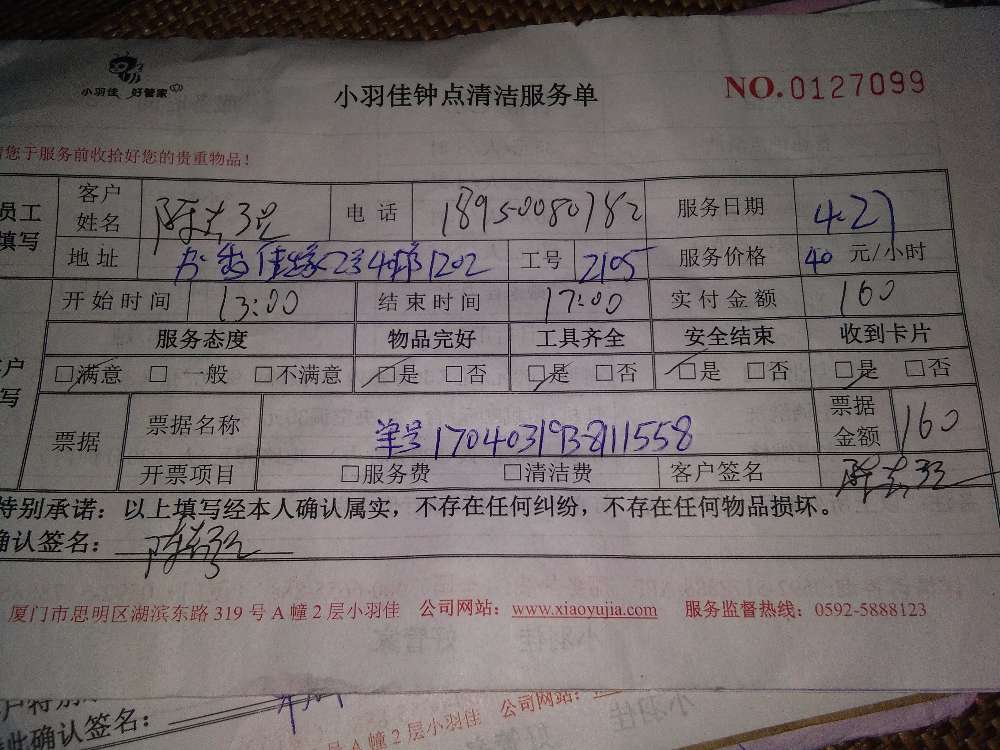 小羽佳 好管家
小羽佳钟点清洁服务单
NO.0127099
您于服务前收拾好您的贵重物品!
员工填写 客户姓名 陈 电话 18950080782 服务日期 4.27
地址 佳缘 1202 工号 2105 服务价格 40 元/小时
开始时间 13:00 结束时间 17:00 实付金额 160
服务态度 物品完好 工具齐全 安全结束 收到卡片
□满意 □一般 □不满意 □是 □否 □是 □否 □是 □否 □是 □否
票据 票据名称 单号 票据金额 160
开票项目 □服务费 □清洁费 客户签名 陈
特别承诺：以上填写经本人确认属实，不存在任何纠纷，不存在任何物品损坏。
确认签名： 陈
厦门市思明区湖滨东路319号A幢2层小羽佳 公司网站：www.xiaoyujia.com 服务监督热线：0592-5888123
确认签名：
A幢2层小羽佳 公司网站：